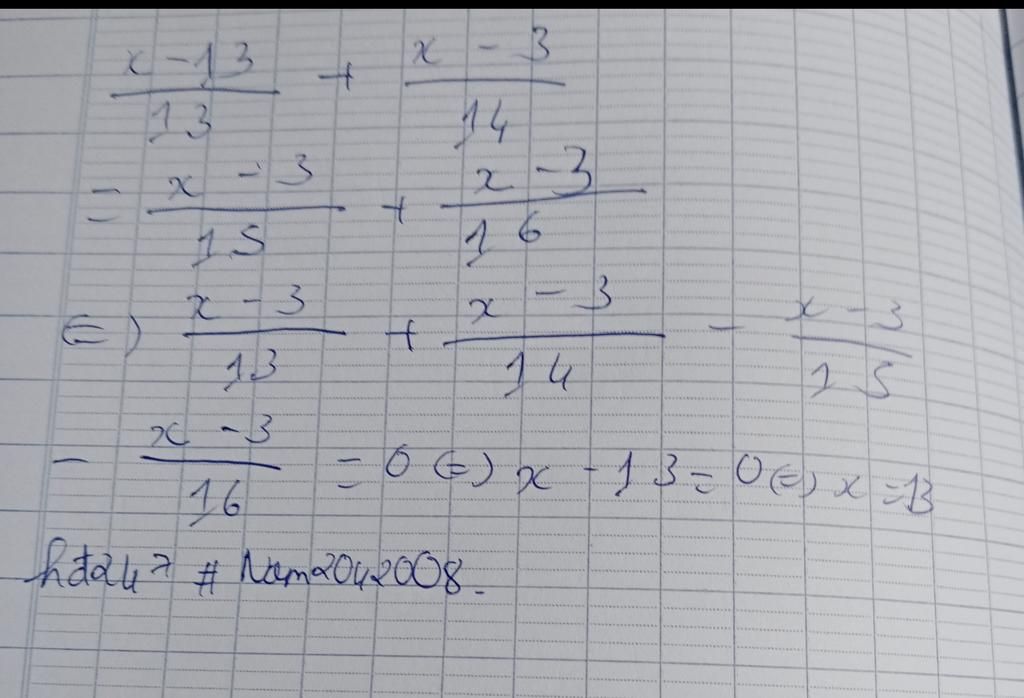 x - 13 / 13 + x - 3 / 14
= x - 3 / 15 + x - 3 / 16
(=) x - 3 / 13 + x - 3 / 14 - x - 3 / 15
- x - 3 / 16 = 0 (=) x - 13 = 0 (=) x = 13
hđ247 # Nam2042008.